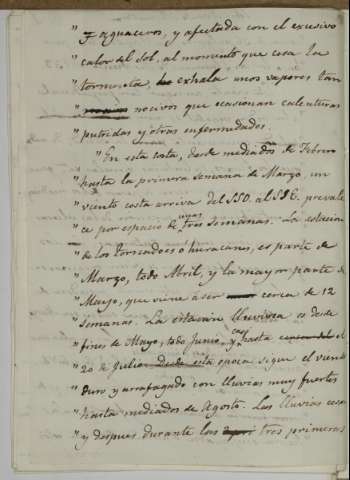 " y aguaceros, y afectada con el excesivo
" calor del Sol, al momento que cesa la
" tormenta, exhala unos vapores tan
" nocivos que ocasionan calenturas
" putridas y otras enfermedades.
" En esta costa, desde mediados de Febrero
" hasta la primera semana de Marzo, un
" viento costa arriva del SSO. al SSE. prevale
" ce por espacio de unas tres semanas. La estacion
" de los tornadoes ó huracanes, es parte de
" Marzo, todo Abril, y la mayor parte de
" Mayo, que viene á ser cerca de 12
" semanas. La estacion lluviosa es desde
" fines de Mayo, todo Junio, y casi hasta el
" 20 de Julio. Desde esta epoca sigue el viento
" duro y arrafagado con lluvias muy fuertes
" hasta mediados de Agosto. Las lluvias cesan
" y despues durante las tres primeras